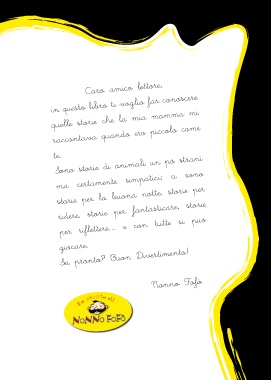 Caro amico lettore,
in questo libro ti voglio far conoscere
quelle storie che la mia mamma mi
raccontava quando ero piccolo come
te.
Sono storie di animali un po strani
ma certamente simpatici; ci sono
storie per la buona notte, storie per
ridere, storie per fantasticare, storie
per riflettere... e con tutte si può
giocare.
Sei pronto? Buon Divertimento!
Nonno Fofo
NONNO FOFO